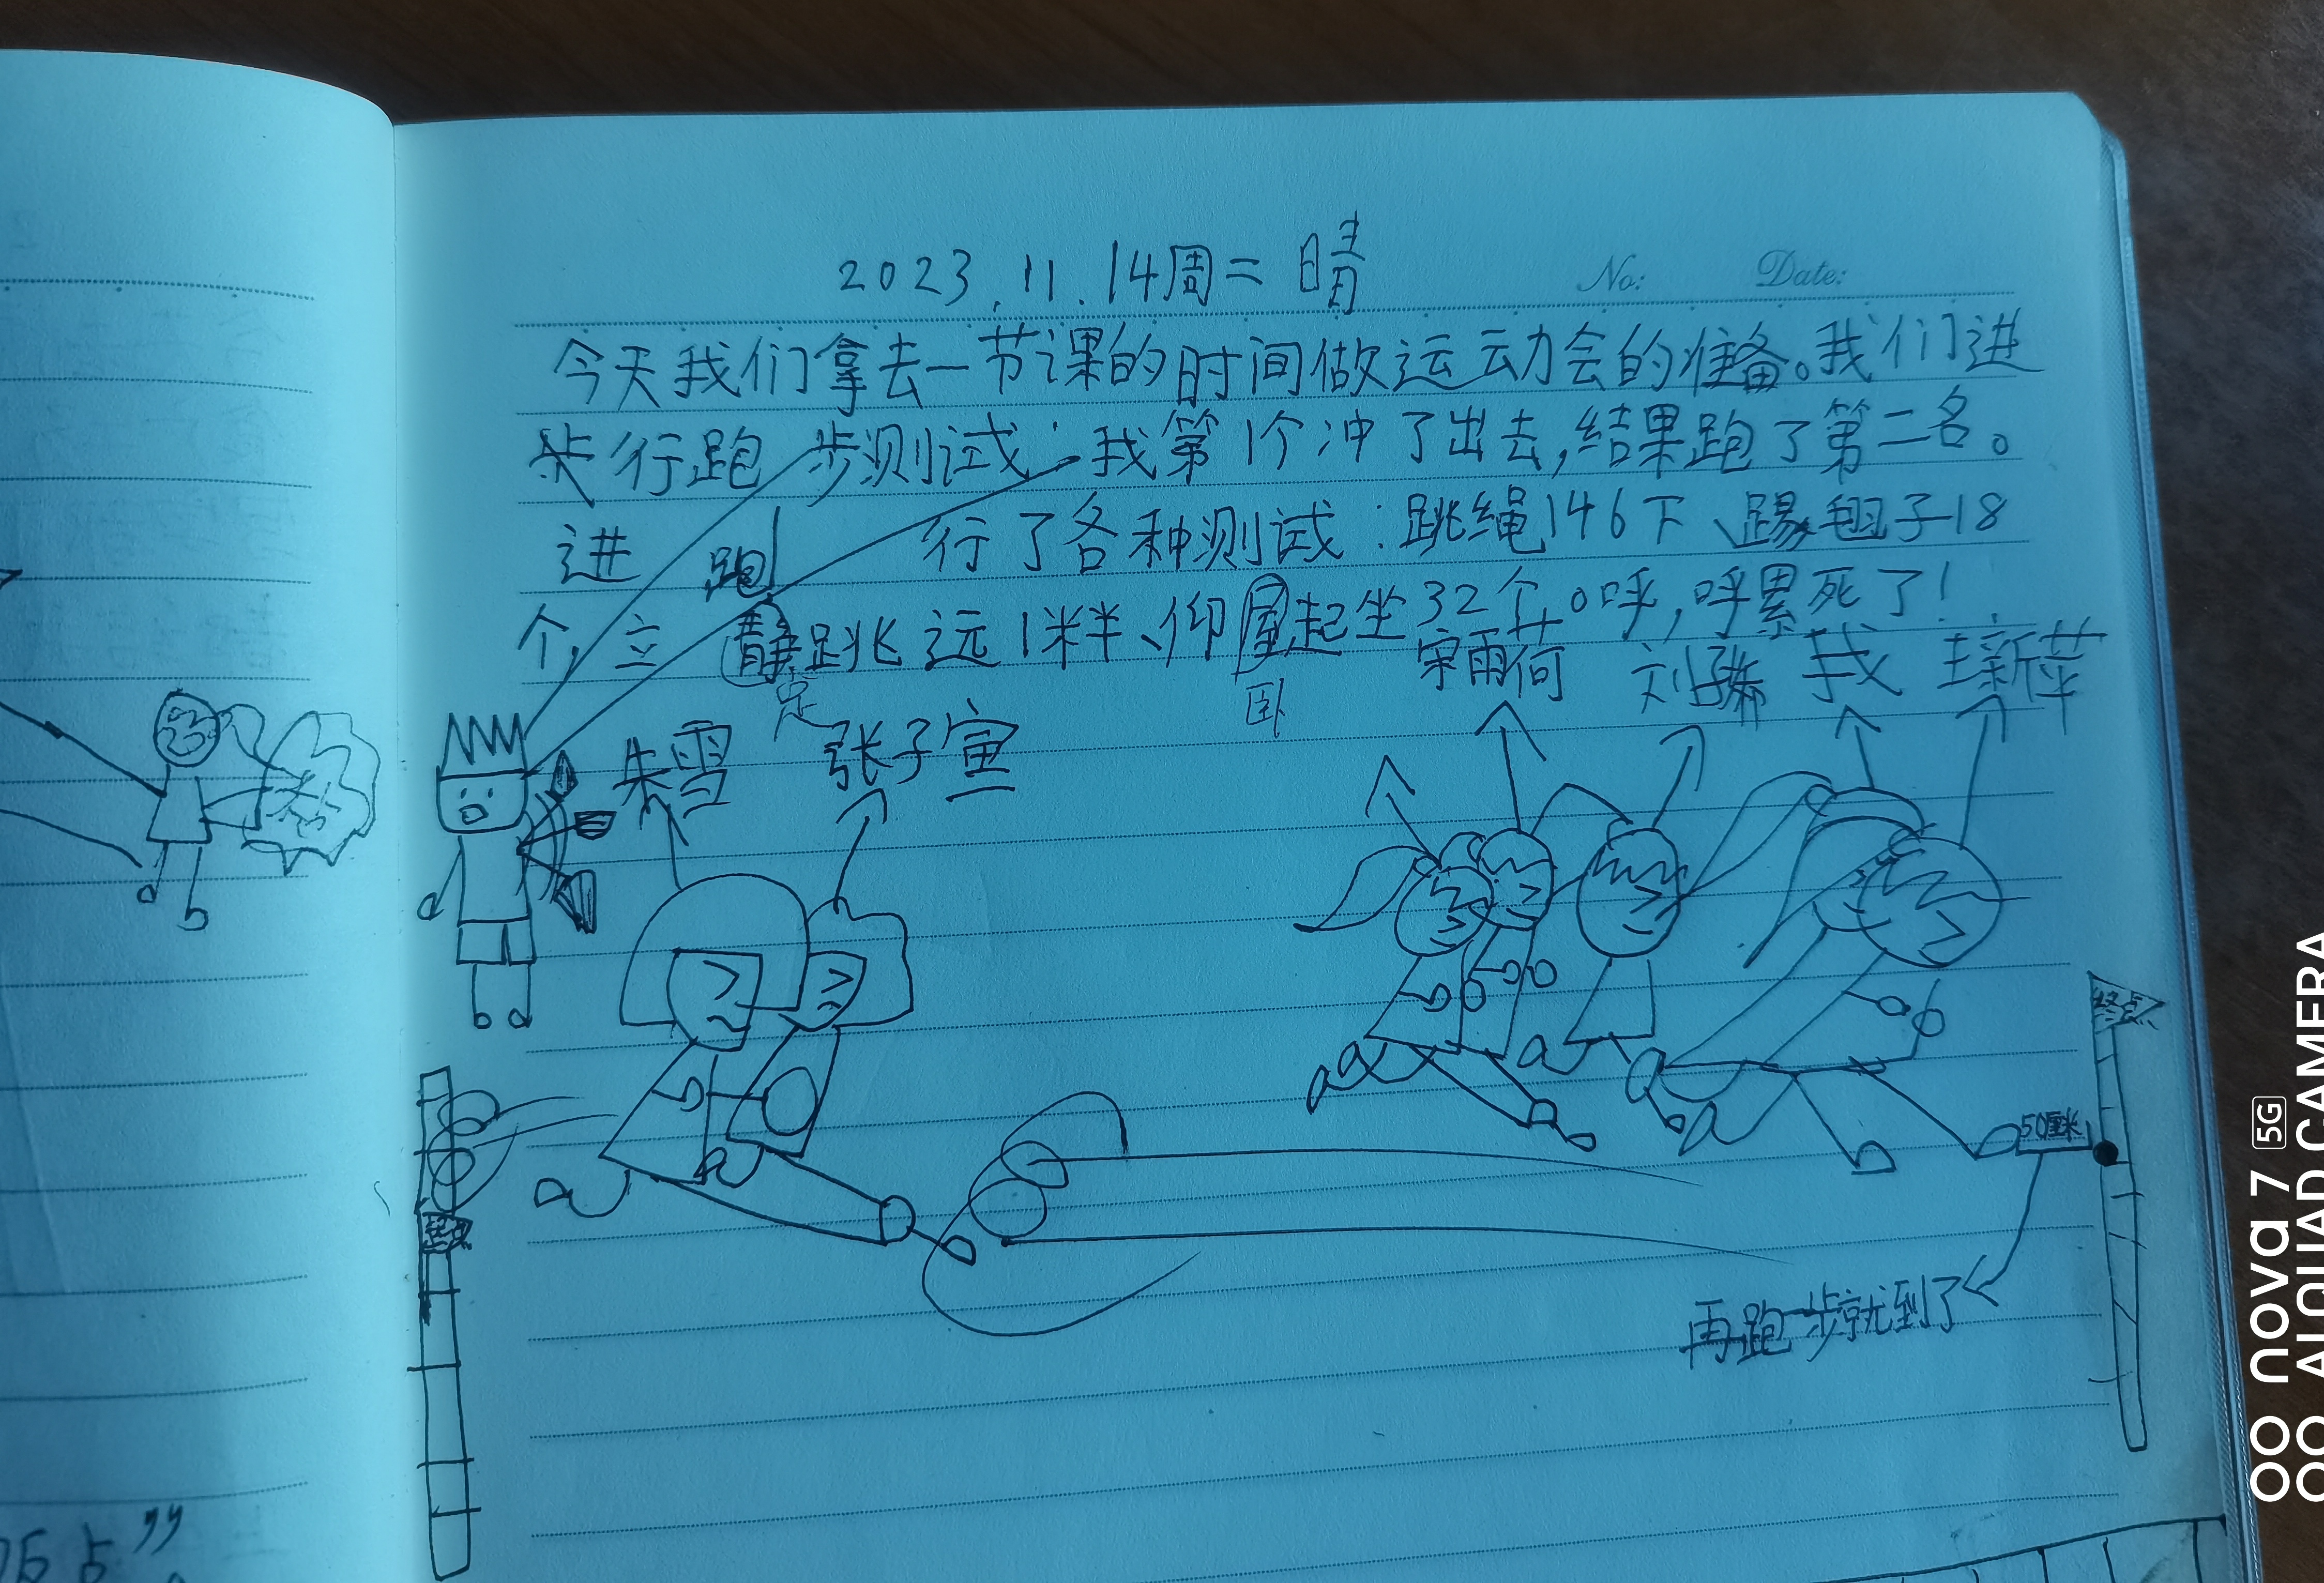 2023.11.14周二 晴
No: Date:
今天我们拿去一节课的时间做运动会的准备。我们进
行跑步测试:我第1个冲了出去,结果跑了第二名。
进 跑 行了各种测试:跳绳146下、踢毽子18
个,立静跳远1米半、仰屋起坐32个。呼,呼累死了!
定
卧
宋雨荷 刘 我 王新萍
朱雪 张子宣
终点
50厘米
起点
再跑一步就到了
饭占”
nova 7 5G
AI QUAD CAMERA